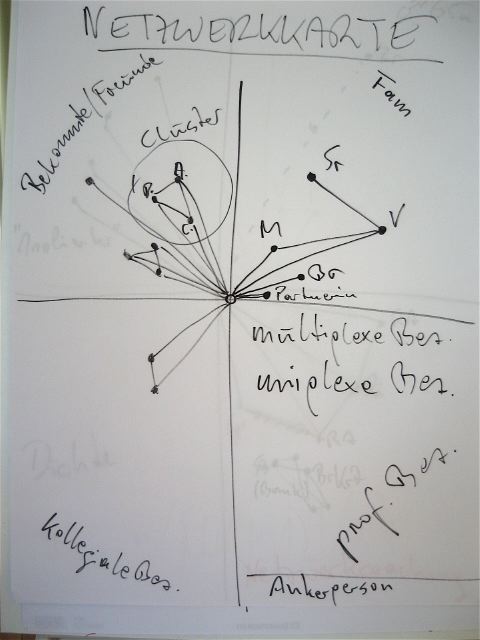 NETZWERKKARTE
Bekannte/Freunde
Cluster
A.
B.
C.
Fam
V
M
Partnerin
multiplexe Bez.
uniplexe Bez.
Dichte
prof. Bez.
Kollegiale Bez.
Ankerperson